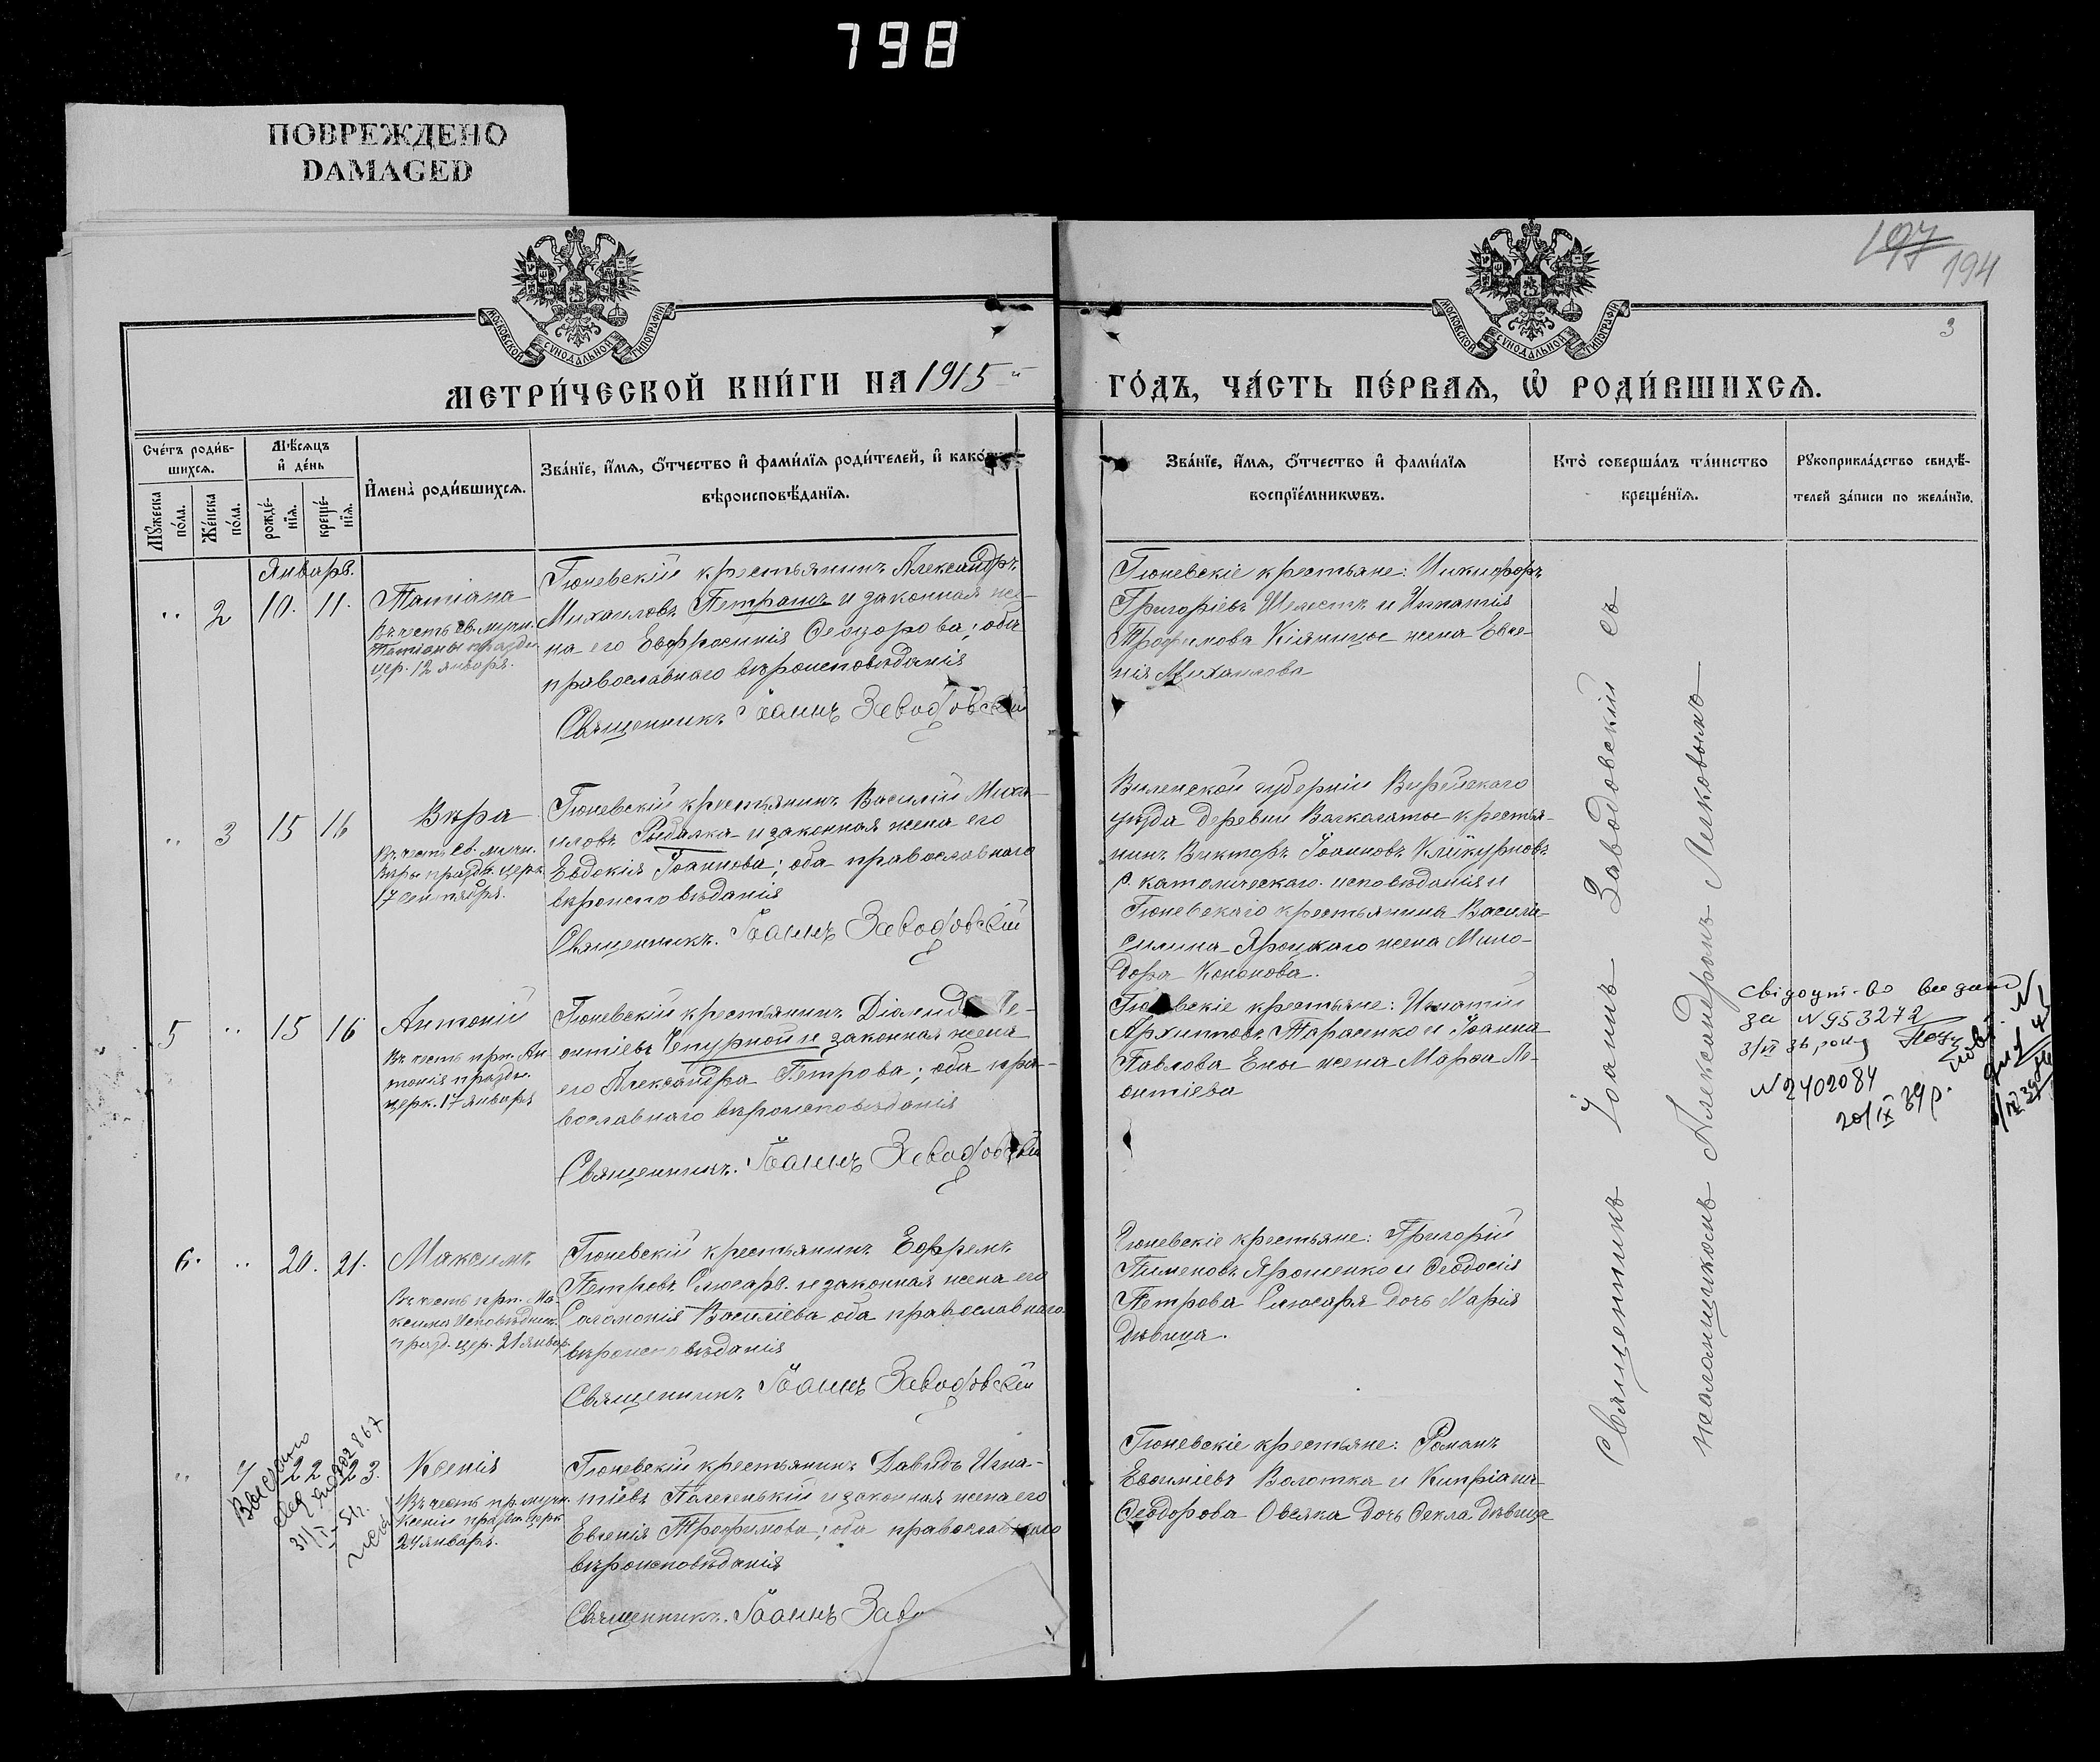 798
ПОВРЕЖДЕНО
DAMAGED
197
194
3
МОСКОВСКОЙ СѴНОДАЛЬНОЙ ТИПОГРАФІИ
МОСКОВСКОЙ СѴНОДАЛЬНОЙ ТИПОГРАФІИ
МЕТРИ́ЧЕСКОЙ КНИ́ГИ НА 1915 й
ГО́ДЪ, ЧА́СТЬ ПЕ́РВАЯ, Ѡ҆ РОДИ́ВШИХСЯ.
Сче́тъ роди́в-
шихся.
Мꙋжеска по́ла.
Же́нска по́ла.
Мѣ́сяцъ
и҆ де́нь
рожде́-
нїя.
креще́-
нїя.
И҆мена̀ роди́вшихся.
Зва́нїе, и҆́мя, ѻ҆́тчество и҆ фами́лїя роди́телей, и҆ како́
вѣроисповѣ́данїя.
Зва́нїе, и҆́мя, ѻ҆́тчество и҆ фами́лїя
воспрїе́мникѡвъ.
Кто̀ соверша́лъ та́инство
креще́нїя.
Рꙋкоприкла́дство свидѣ́-
телей за́писи по жела́нїю.
Январь.
" 2 10. 11.
Татіана
Въ честь св. мучн.
Татіаны праздн.
цер. 12 января.
Гюневскій крестьянинъ Александръ
Михаиловъ Петрашъ и законная же-
на его Евфросинія Ѳеодорова; оба
православнаго вѣроисповѣданія
Священникъ Іоаннъ Заводовскій
Гюневскіе крестьяне: Никифоръ
Григоріевъ Шелестъ и Игнатія
Трофимова Кіяницы жена Евге-
нія Михаилова
" 3 15 16
Вѣра
Въ честь св. мучн.
Вѣры праздн. церк.
17 сентября.
Гюневскій крестьянинъ Василій Миха-
иловъ Рыбалка и законная жена его
Евдокія Іоаннова; оба православнаго
вѣроисповѣданія
Священникъ. Іоаннъ Заводовскій
Виленской губерніи
уѣзда деревни крестья-
нинъ Викторъ Іоанновъ
р. католическаго исповѣданія и
Гюневскаго крестьянина
жена Мило-
дора Кононова.
5 " 15 16
Антоній
Въ честь прп. Ан-
тонія праздн.
церк. 17 января
Гюневскій крестьянинъ Ле-
онтіевъ Чепурной и законная жена
его Александра Петрова; оба пра-
вославнаго вѣроисповѣданія
Священникъ. Іоаннъ Заводовскій
Гюневскіе крестьяне: Игнатій
Архиповъ Тарасенко и Іоанна
Павлова Ены жена Марѳа Ле-
онтіева
Свідоцт-во видано
за N 953272
N 2402084
20/IX 39 р.
6. " 20. 21.
Максимъ
Въ честь прп. Ма-
ксима Исповѣдник.
празд. цер. 21 январ.
Гюневскій крестьянинъ Ефремъ
Петровъ Слюсарь и законная жена его
Соломонія Василіева оба православнаго
вѣроисповѣданія
Священникъ Іоаннъ Заводовскій
Гюневскіе крестьяне: Григорій
Пименовъ Ярошенко и Ѳеодосія
Петрова Слюсаря дочь Марія
дѣвица.
" 4 22 23.
Ксенія
Въ честь пр. мучн.
Ксеніи праздн. церк.
24 января.
Гюневскій крестьянинъ Давидъ Игна-
тіевъ Паленькій и законная жена его
Евгенія Трофимова; оба православнаго
вѣроисповѣданія
Священникъ. Іоаннъ Заво
Гюневскіе крестьяне: Романъ
Евѳиміевъ Волотка и Кипріана
Ѳеодорова Овсяка дочь Ѳекла дѣвица
Священникъ Іоаннъ Заводовскій съ
псаломщикомъ Александромъ Лисковымъ